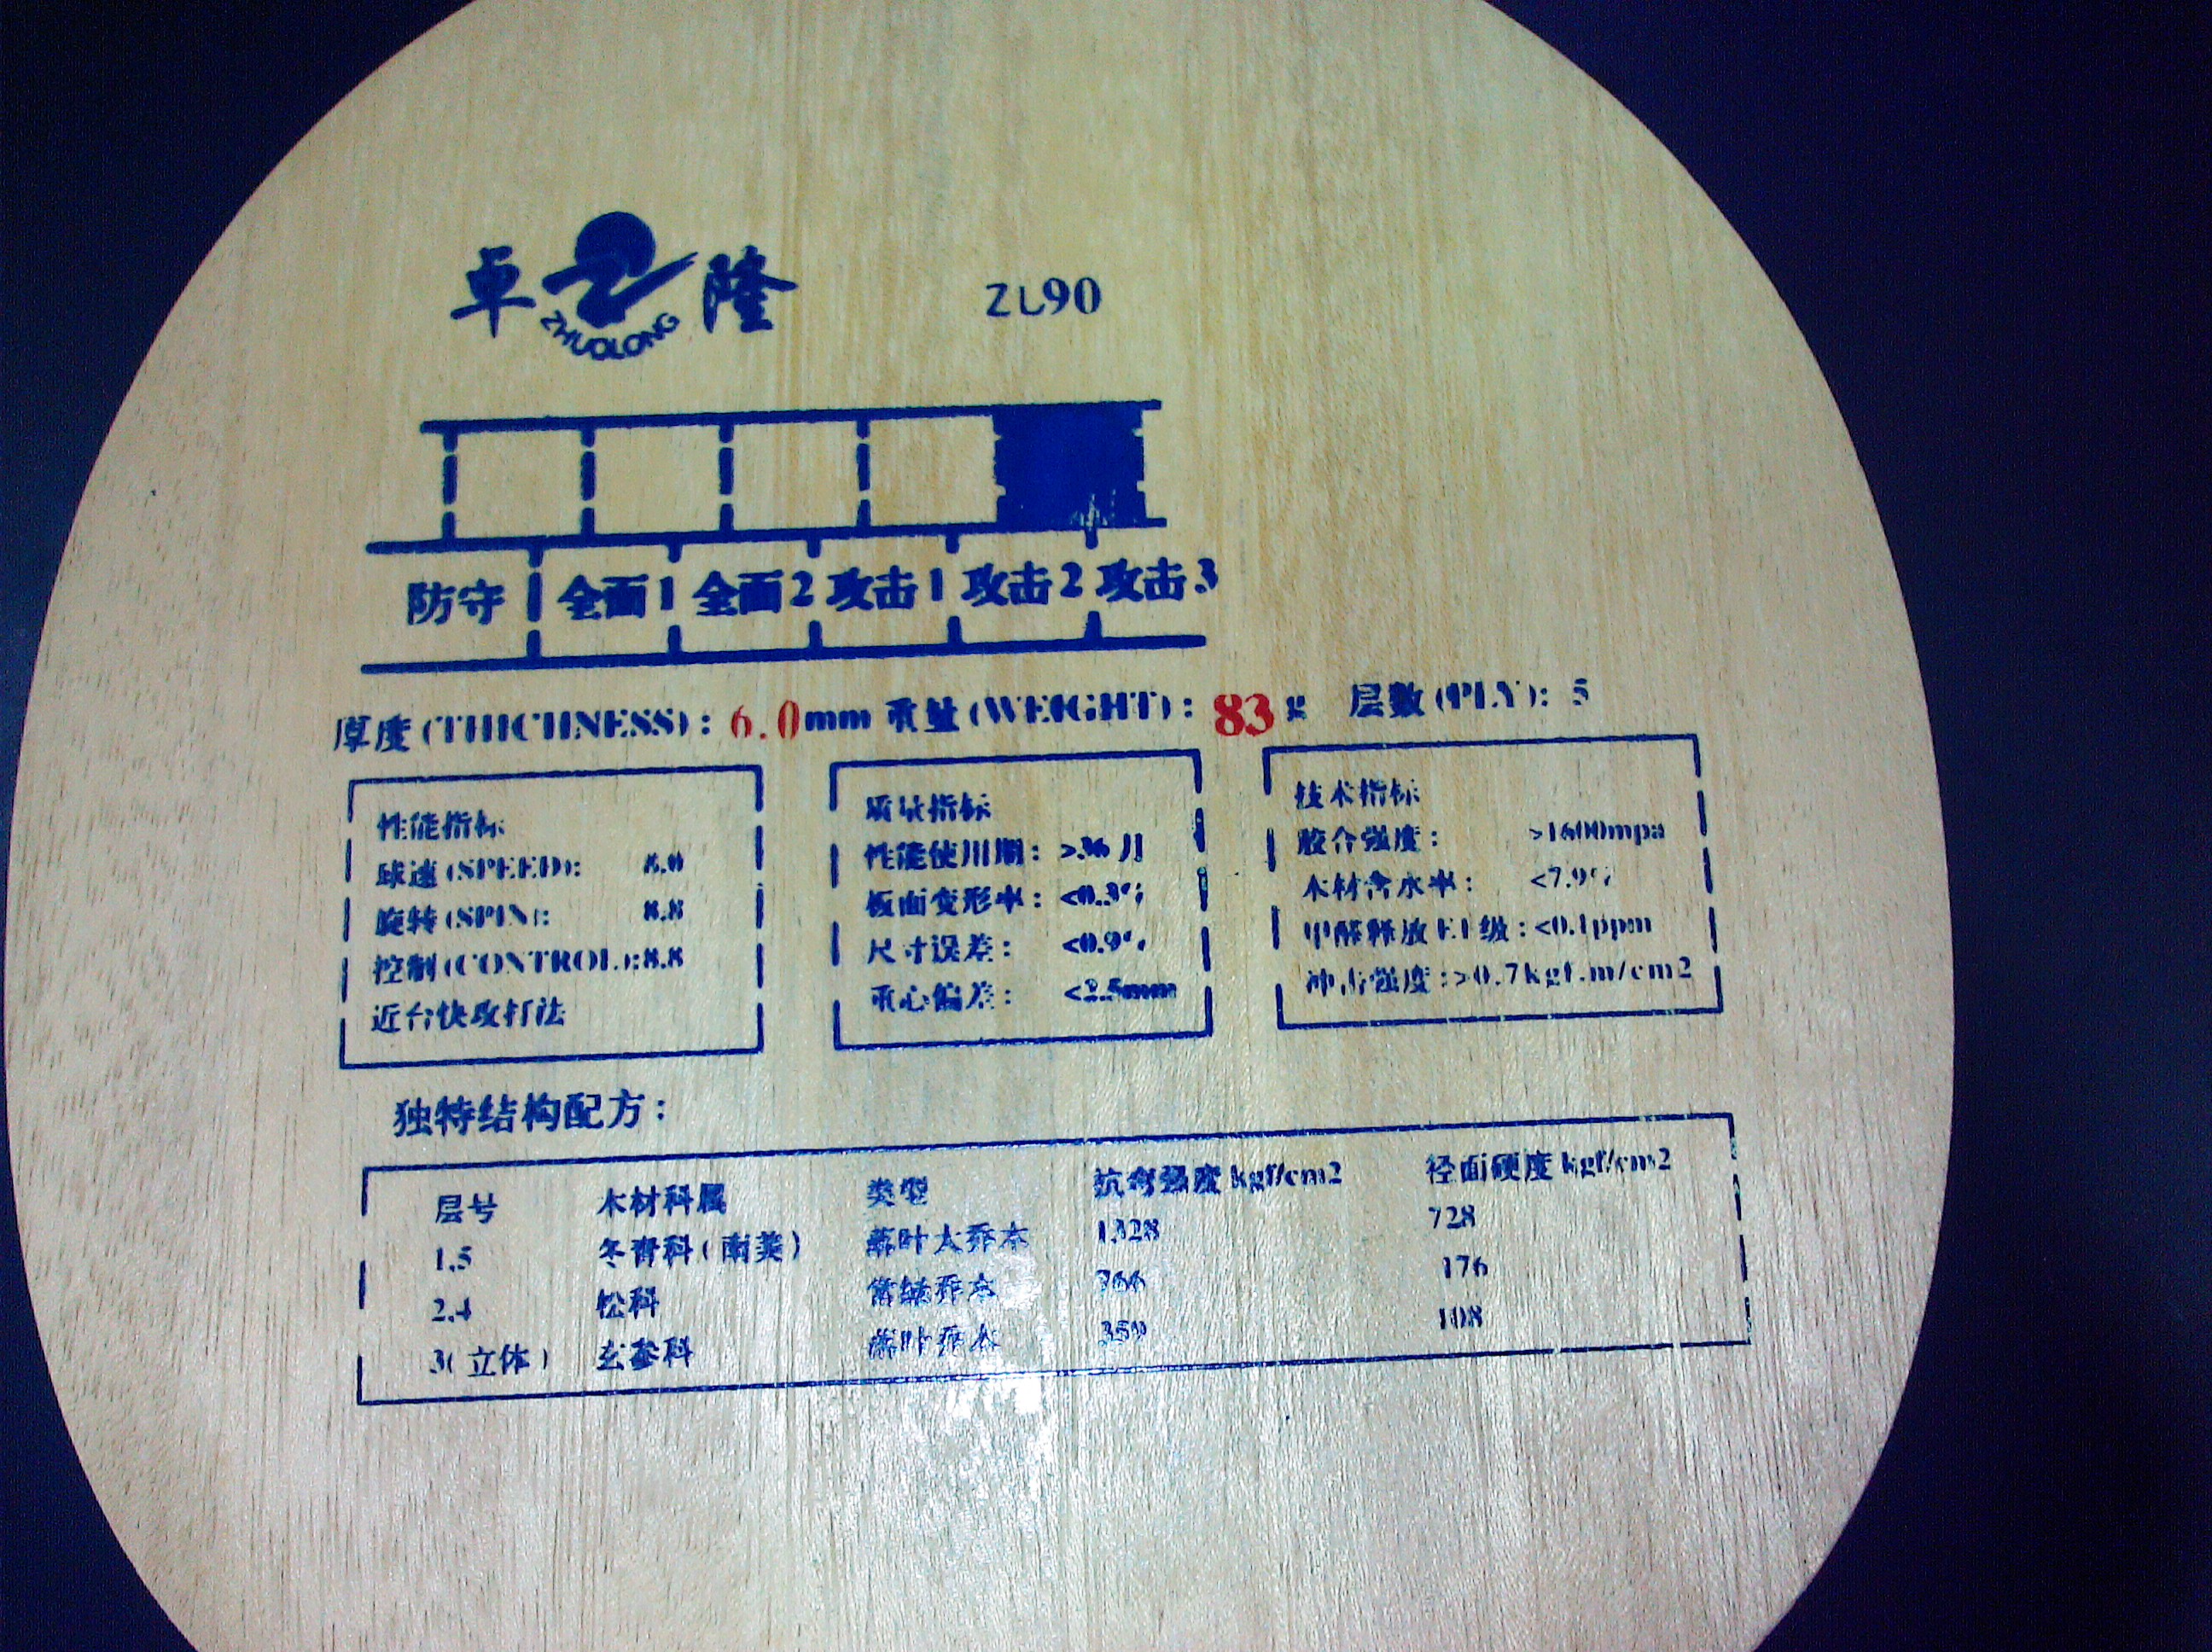 卓 ZHUOLONG 隆 ZL90
防守 全面1 全面2 攻击1 攻击2 攻击3
厚度(THICHNESS): 6.0mm 重量(WEIGHT): 83g 层数(PLY): 5
性能指标
球速(SPEED):
旋转(SPIN): 8.8
控制(CONTROL):8.8
近台快攻打法
质量指标
性能使用期: >36月
板面变形率: <0.3%
尺寸误差: <0.9%
重心偏差: <2.5mm
技术指标
胶合强度: >1600mpa
木材含水率: <7.9%
甲醛释放E1级: <0.1ppm
冲击强度: >0.7kgf.m/cm2
独特结构配方:
层号 木材科属 类型 抗弯强度kgf/cm2 径面硬度kgf/cm2
1.5 冬青科( ) 落叶大乔木 1328 728
2.4 松科 常绿乔木 766 176
3(立体) 玄参科 落叶乔木 359 108